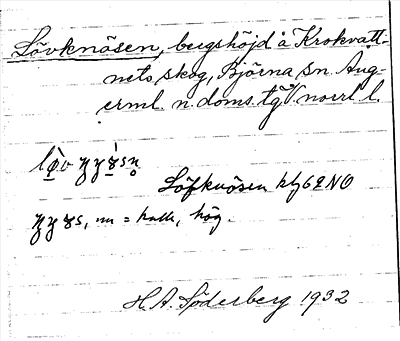 Lövknösen, bergshöjd å Krokvatt-
nets skog, Björna sn. Ång-
erml. n. doms. tg V. norrl l.
Löfknösen kbl 62 NO
= kulle, hög.
H. A. Söderberg 1932